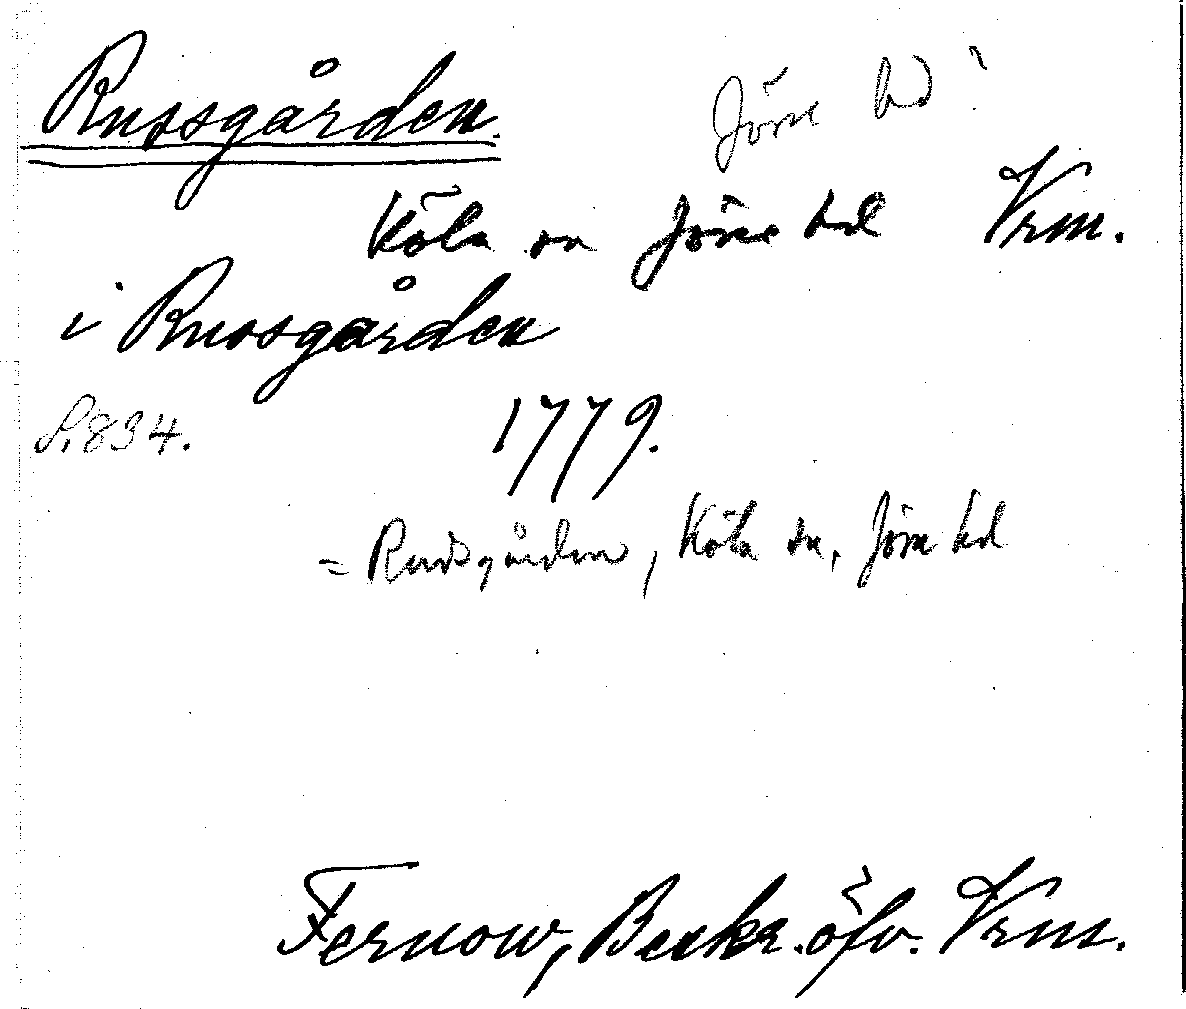 Russgården.
Jöse hd
Köla sn Jöse hd Vrm.
i Russgården
S. 834.
1779.
= Rudsgården, Köla sn, Jöse hd
Fernow, Beskr. öfv. Vrm.